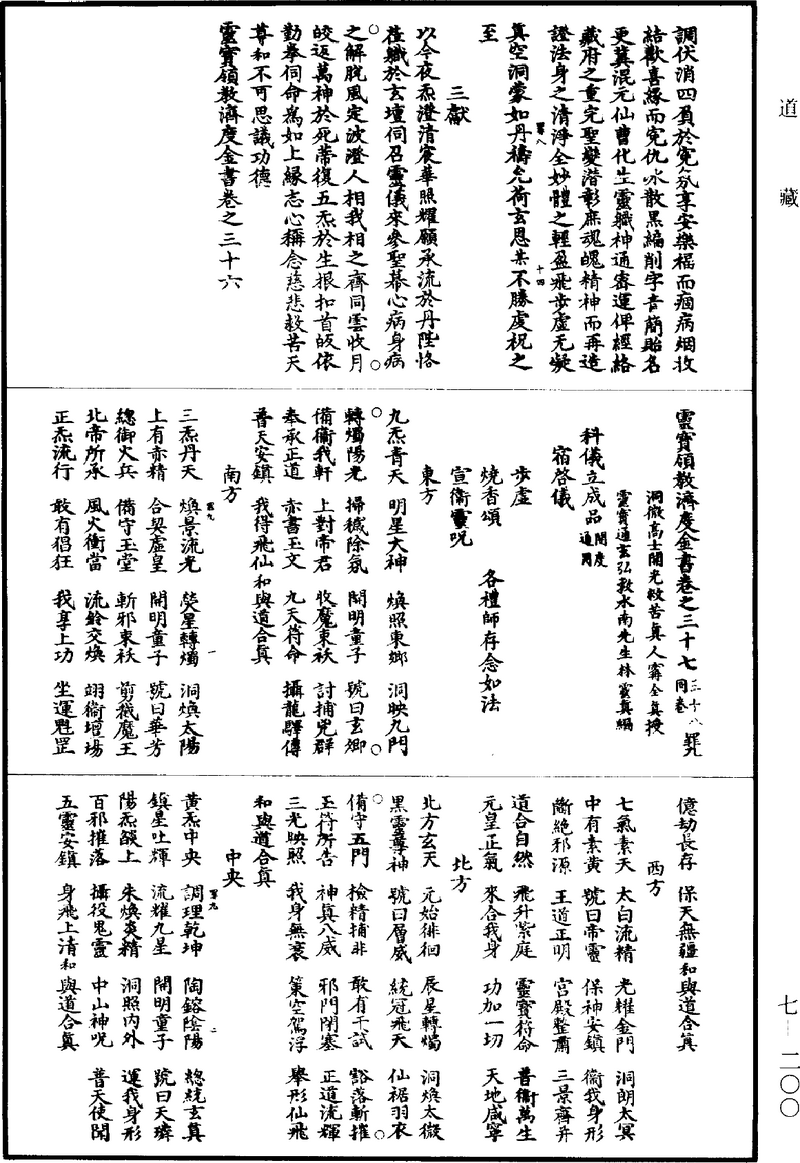 道藏
七—二〇〇
調伏消四負於寃氛享安樂福而痼病烟收
結歡喜緣而寃仇冰散黑編削字青簡貽名
更冀混元仙曹化生靈職神通密運俾經絡
藏府之重完聖變潛彰庶魂魄精神而再造
證法身之清淨全妙體之輕盈飛步虛无凝
真空洞蒙如丹禱允荷玄恩某不勝虔祝之
至
三獻
以今夜炁澄清宸華照耀願承流於丹陛恪
莅職於玄壇伺召靈儀來參聖棊心病身病
之解脫風定波澄人相我相之齊同雲收月
皎返萬神於死蔕復五炁於生根扣首皈依
勤拳伺命為如上緣志心稱念慈悲救苦天
尊和不可思議功德
靈寶領教濟度金書卷之三十六
靈寶領教濟度金書卷之三十七 三十八同卷 罪九
洞微高士開光救苦真人甯全真授
靈寶通玄弘教水南先生林靈真編
科儀立成品 開度通用
宿啓儀
步虛
燒香頌 各禮師存念如法
宣衛靈呪
東方
九炁青天 明星大神 煥照東鄉 洞映九門
轉燭陽光 掃穢除氛 開明童子 號曰玄卿
備衛我軒 上對帝君 收魔束祅 討捕兇群
奉承正道 赤書玉文 九天符命 攝龍驛傳
普天安鎮 我得飛仙 和與道合真
南方
三炁丹天 煥景流光 熒星轉燭 洞煥太陽
上有赤精 合契虛皇 開明童子 號曰華芳
總御火兵 備守玉堂 斬邪束祅 剪截魔王
北帝所承 風火衝當 流鈴交煥 翊衛壇場
正炁流行 敢有猖狂 我享上功 坐運魁罡
億劫長存 保天無疆 和與道合真
西方
七氣素天 太白流精 光耀金門 洞朗太冥
中有素黃 號曰帝靈 保神安鎮 衛我身形
斷絕邪源 王道正明 宮殿整肅 三景齊并
道合自然 飛升紫庭 靈寶符命 普衛萬生
元皇正氣 來合我身 功加一切 天地咸寧
北方
北方玄天 元始徘徊 辰星轉燭 洞煥太微
黑靈尊神 號曰層威 統冠飛天 仙裾羽衣
備守五門 檢精捕非 敢有干試 豁落斬摧
玉符所告 神真八威 邪門閉塞 正道流輝
三光映照 我身無衰 策空駕浮 舉形仙飛
和與道合真
中央
黃炁中央 調理乾坤 陶鎔陰陽 總統玄真
鎮星吐輝 流耀九星 開明童子 號曰天璘
陽炁燄上 朱煥炎精 洞照內外 運我身形
百邪摧落 攝役鬼靈 中山神呪 普天使聞
五靈安鎮 身飛上清 和與道合真